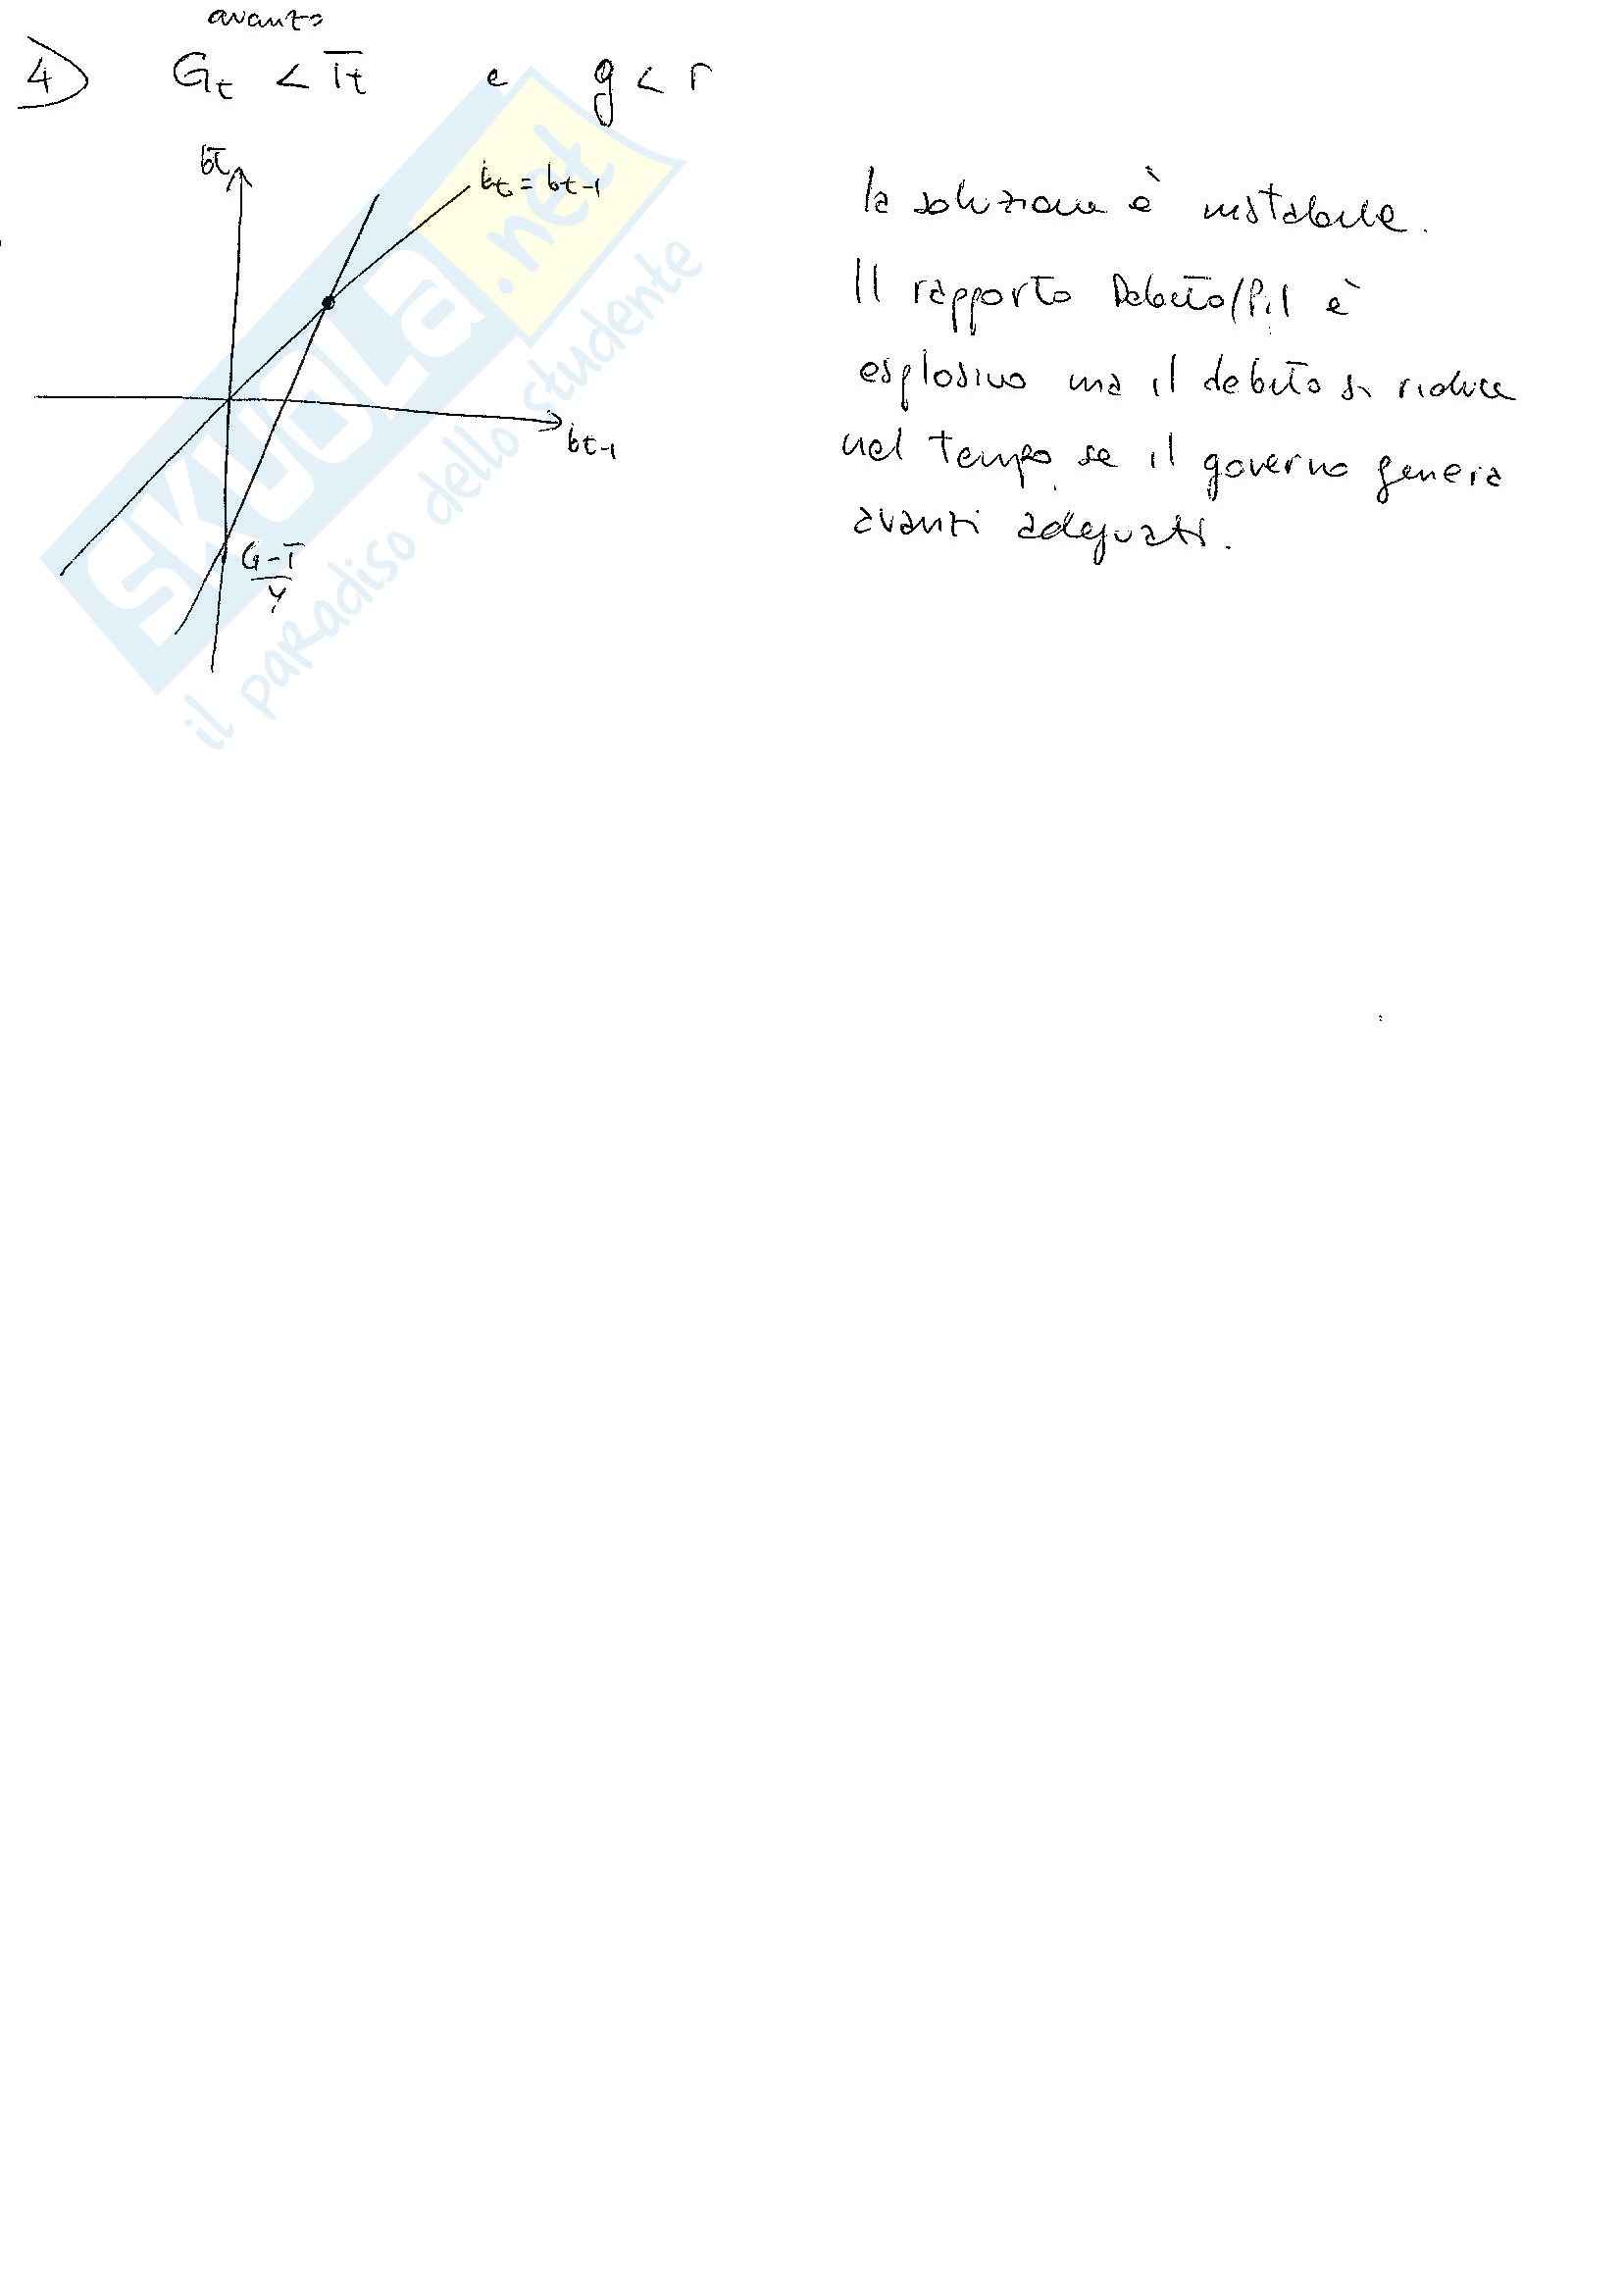 avanzo
4) Gt < Tt e g < r
bt
bt = bt-1
bt-1
G-T
Y
la soluzione è instabile.
Il rapporto Debito/Pil è
esplosivo ma il debito si riduce
nel tempo se il governo genera
avanzi adeguati.
SKUOLa.net
il paradiso dello studente